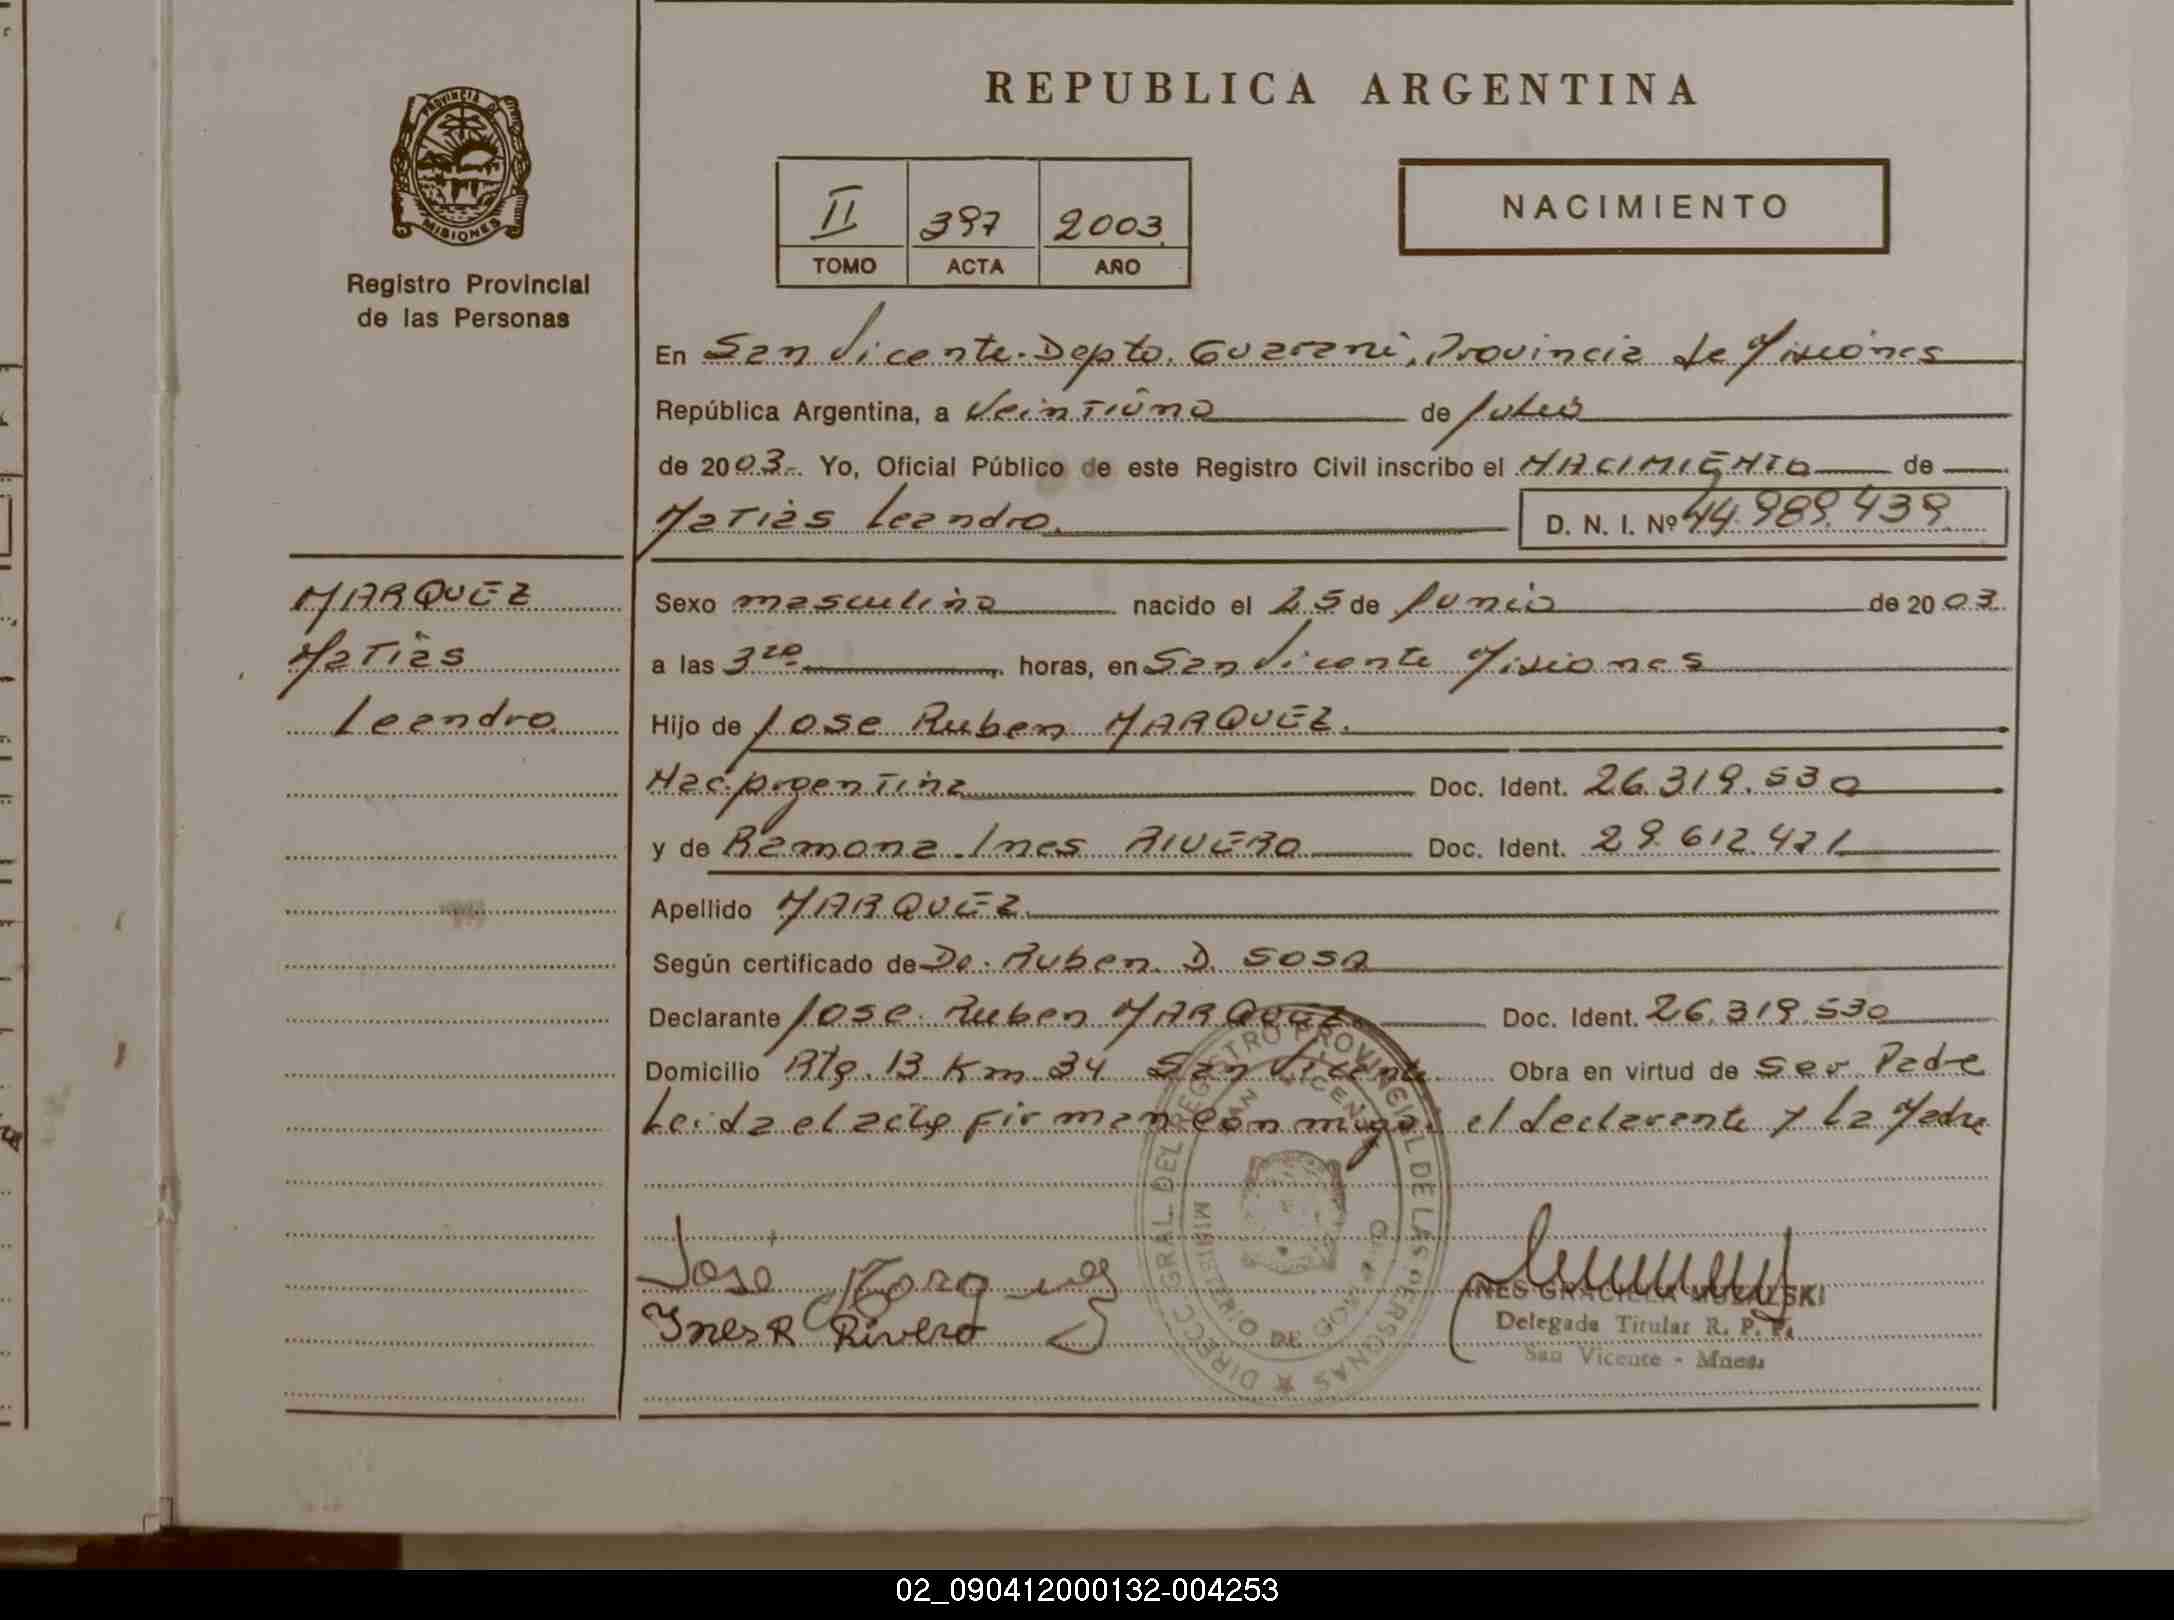 REPUBLICA ARGENTINA
PROVINCIA DE
MISIONES
Registro Provincial
de las Personas
II 397 2003
TOMO ACTA AÑO
NACIMIENTO
En San Vicente. Depto. Guarani, Provincia de Misiones
República Argentina, a Veintiuno de Julio
de 2003.- Yo, Oficial Público de este Registro Civil inscribo el NACIMIENTO de
Matias Leandro. D. N. I. Nº 44.989.439
MARQUEZ
Matias
Leandro
Sexo masculino nacido el 25 de Junio de 2003
a las 3 20 horas, en San Vicente Misiones
Hijo de Jose Ruben MARQUEZ.
Nac. Argentina Doc. Ident. 26.319.530
y de Ramona Ines RIVERO Doc. Ident. 29.612.421
Apellido MARQUEZ
Según certificado de Dr. Ruben D. SOSA
Declarante Jose Ruben MARQUEZ Doc. Ident. 26.319.530
Domicilio Rta. 13 Km 34 San Vicente Obra en virtud de ser Padre
Leida el acta firman conmigo el declarante y la Madre
DIRECC. GRAL. DEL REGISTRO PROVINCIAL DE LAS PERSONAS
SAN VICENTE
MINISTERIO DE GOB
Jose Marquez
Ines R Rivero
INES GRACIELA
Delegada Titular R. P. P.
San Vicente - Mnes.
02_090412000132-004253